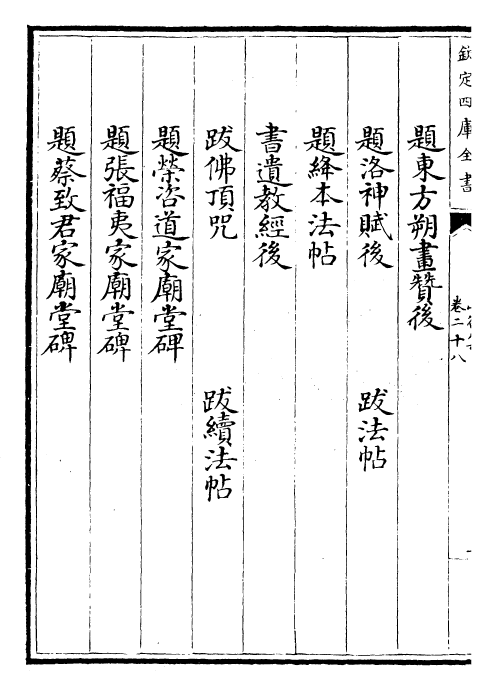 欽定四庫全書
卷二十八
題東方朔畫贊後
題洛神賦後 跋法帖
題絳本法帖
書遺教經後
跋佛頂咒 跋續法帖
題榮咨道家廟堂碑
題張福夷家廟堂碑
題蔡致君家廟堂碑